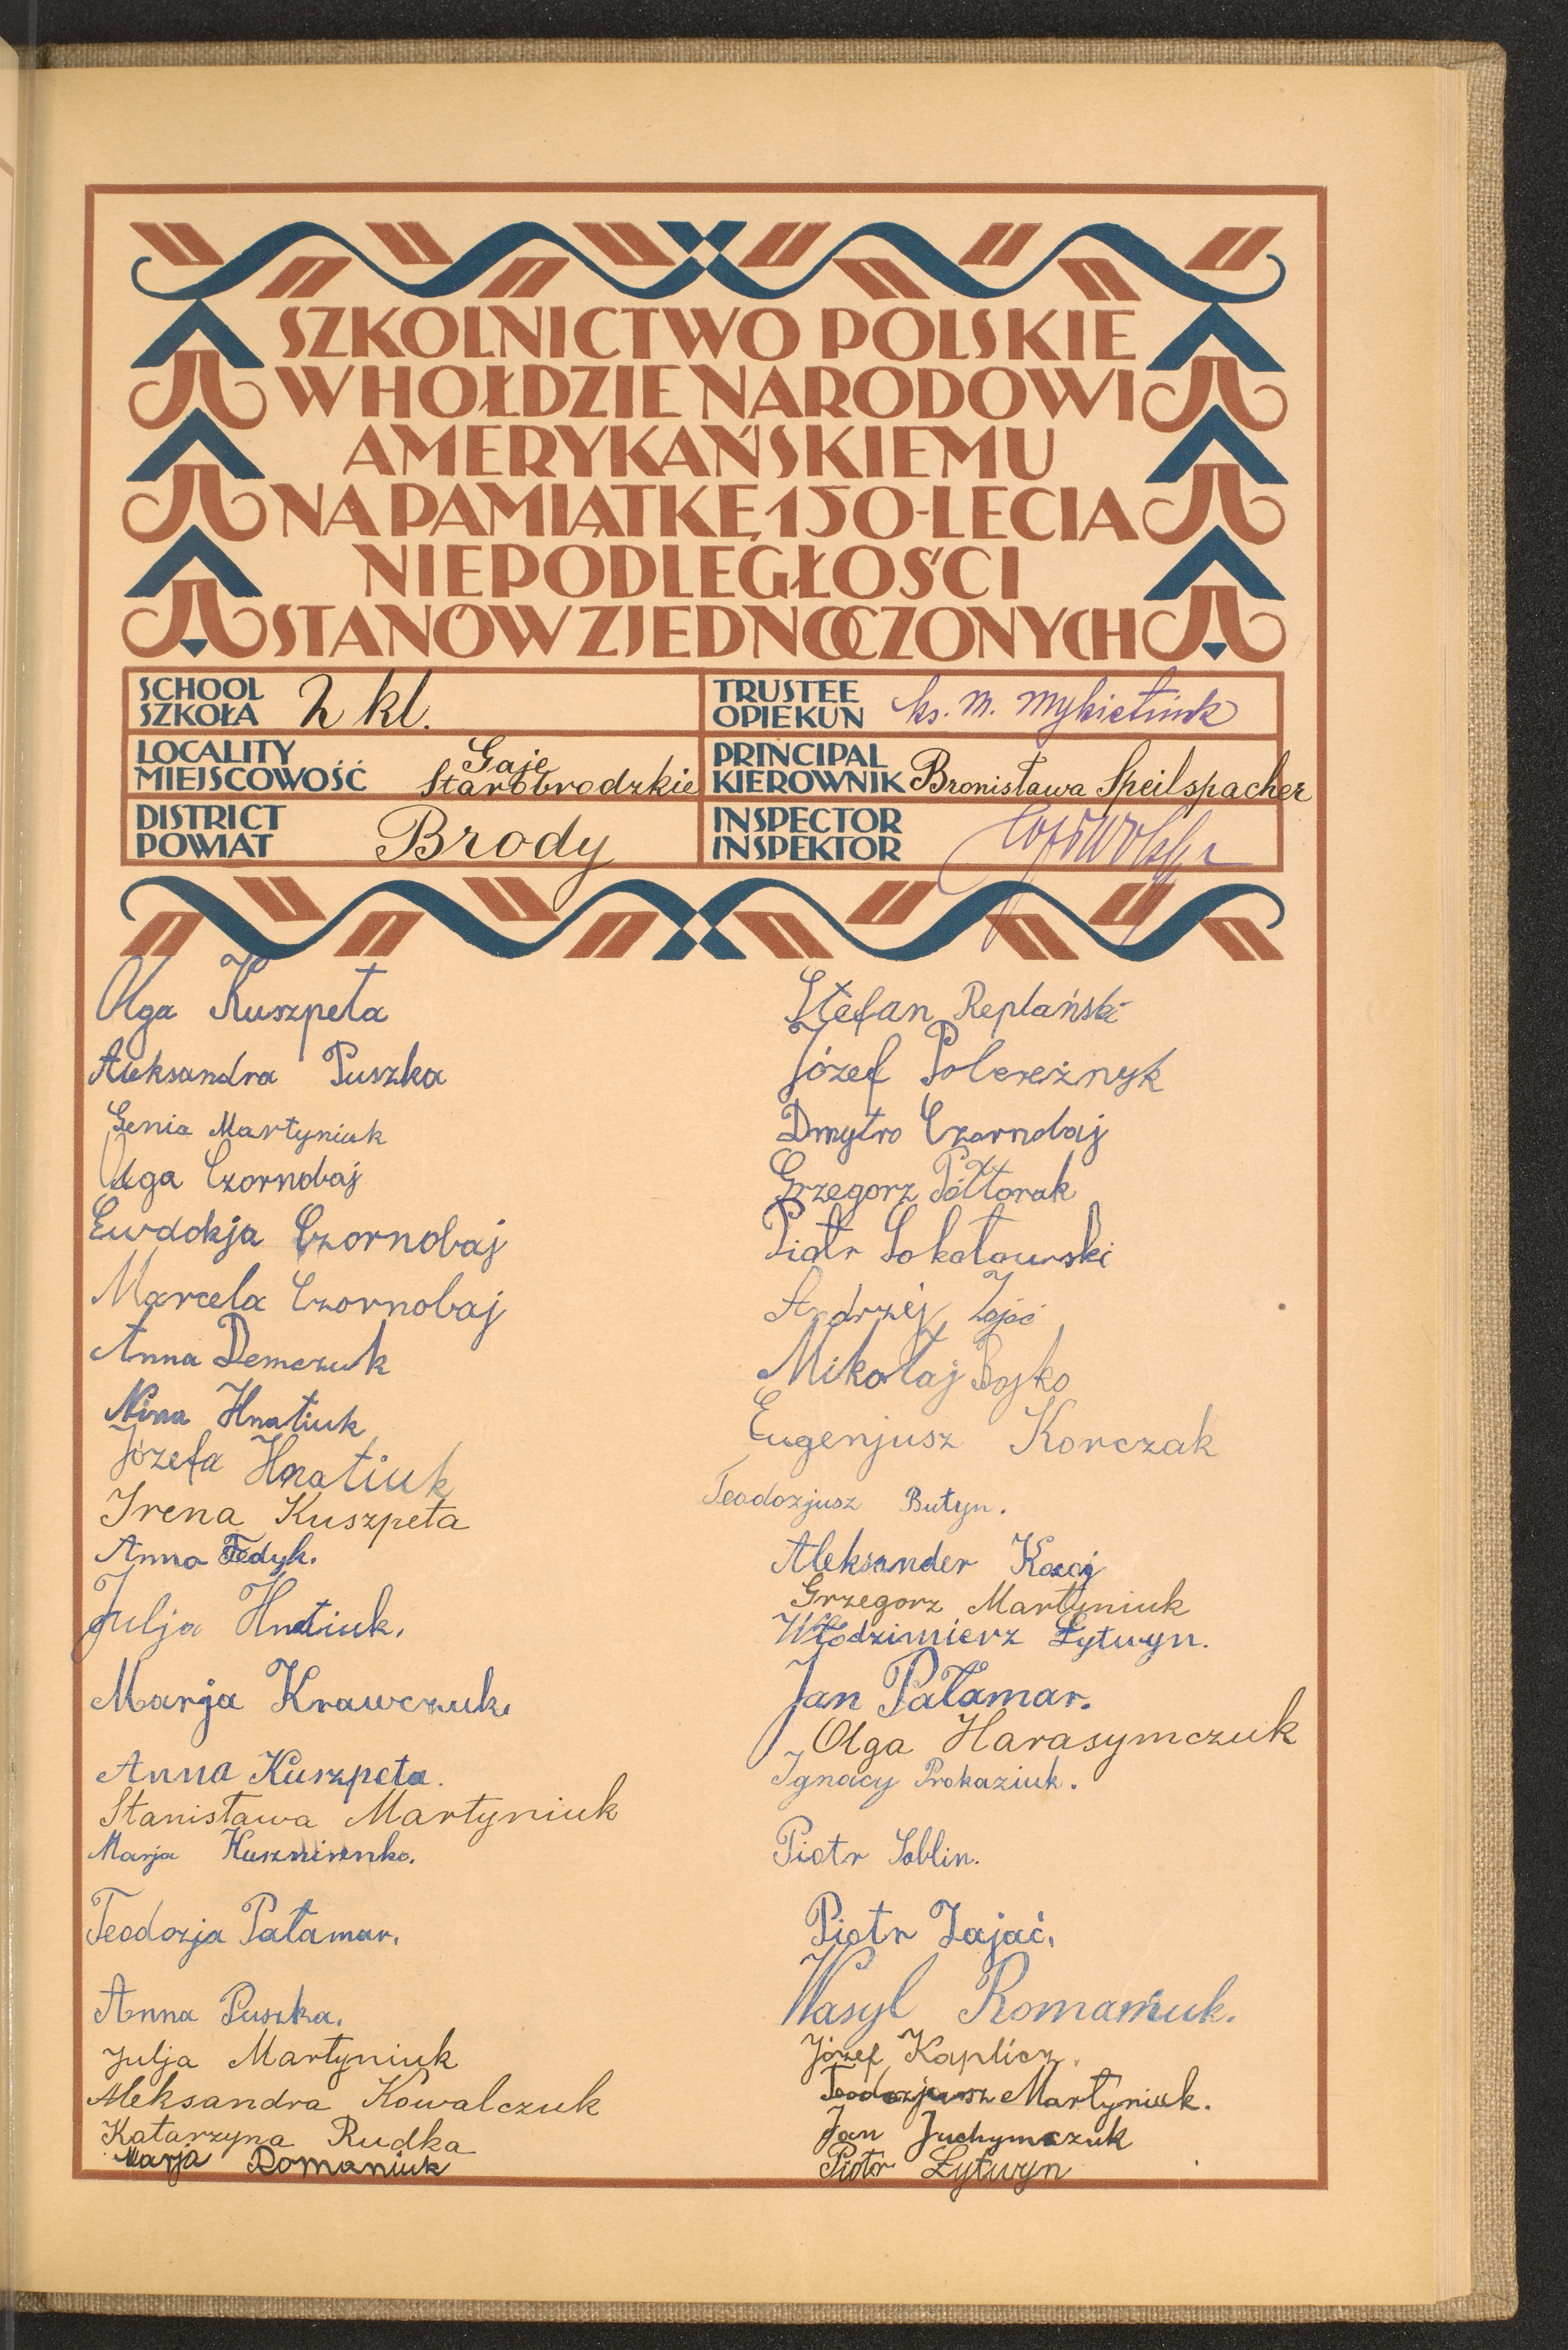 SZKOLNICTWO POLSKIE
W HOŁDZIE NARODOWI
AMERYKAŃSKIEMU
NA PAMIĄTKĘ 150-LECIA
NIEPODLEGŁOŚCI
STANÓW ZJEDNOCZONYCH
SCHOOL
SZKOŁA 2 kl.
TRUSTEE
OPIEKUN ks. M. Mykietiuk
LOCALITY
MIEJSCOWOŚĆ Gaje Starobrodzkie
PRINCIPAL
KIEROWNIK Bronisława Speilspacher
DISTRICT
POWIAT Brody
INSPECTOR
INSPEKTOR
Olga Kuszpeta
Aleksandra Puszka
Genia Martyniuk
Olga Czornobaj
Ewdokja Czornobaj
Marcela Czornobaj
Anna Demczuk
Nina Hnatiuk
Józefa Hnatiuk
Irena Kuszpeta
Anna Fedyk.
Julja Hnatiuk.
Marja Krawczuk.
Anna Kuszpeta.
Stanisława Martyniuk
Marja
Teodozja Pałamar.
Anna Puszka.
Julja Martyniuk
Aleksandra Kowalczuk
Katarzyna Rudka
Marja Romaniuk
Stefan Replański
Józef Polereżnyk
Dmytro Czornobaj
Grzegorz Półtorak
Piotr Sokołowski
Andrzej Zając
Mikołaj Bojko
Eugenjusz Korczak
Teodozjusz Butyn.
Aleksander
Grzegorz Martyniuk
Włodzimierz Łytwyn.
Jan Pałamar.
Olga Harasymczuk
Ignacy Prokaziuk.
Piotr Soblin.
Piotr Zajać.
Wasyl Romaniuk.
Józef Kaplicz.
Teodozjusz Martyniuk.
Jan Juchymczuk
Piotr Łytwyn